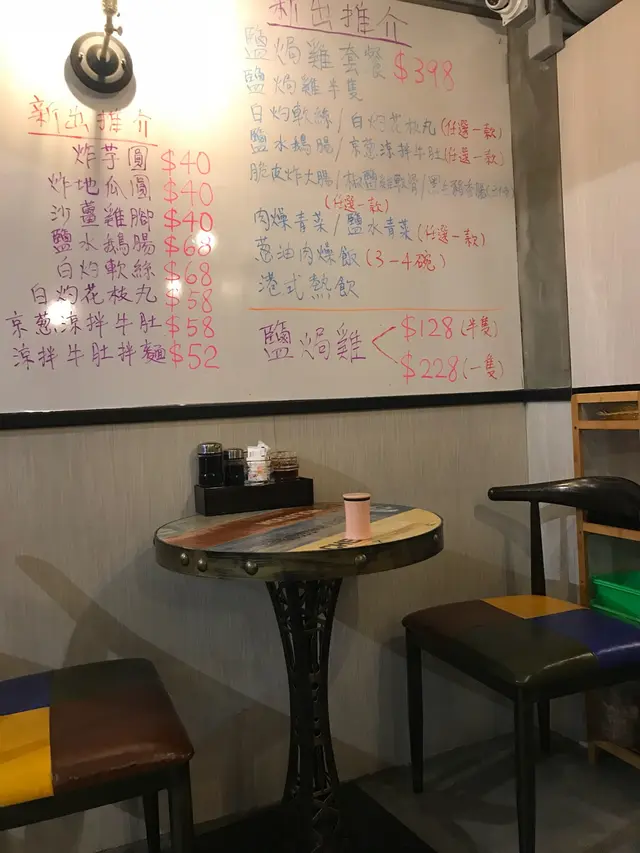 新出推介
炸芋圓 $40
炸地瓜圓 $40
沙薑雞腳 $40
鹽水鵝腸 $68
白灼軟絲 $68
白灼花枝丸 $58
京葱涼拌牛肚 $58
涼拌牛肚拌麵 $52
新出推介
鹽焗雞套餐 $398
鹽焗雞半隻
白灼軟絲/白灼花枝丸(任選一款)
鹽水鵝腸/京葱涼拌牛肚(任選一款)
脆皮炸大腸/椒鹽雞軟骨/
(任選一款)
肉燥青菜/鹽水青菜(任選一款)
葱油肉燥飯(3-4碗)
港式熱飲
鹽焗雞 $128(半隻)
$228(一隻)